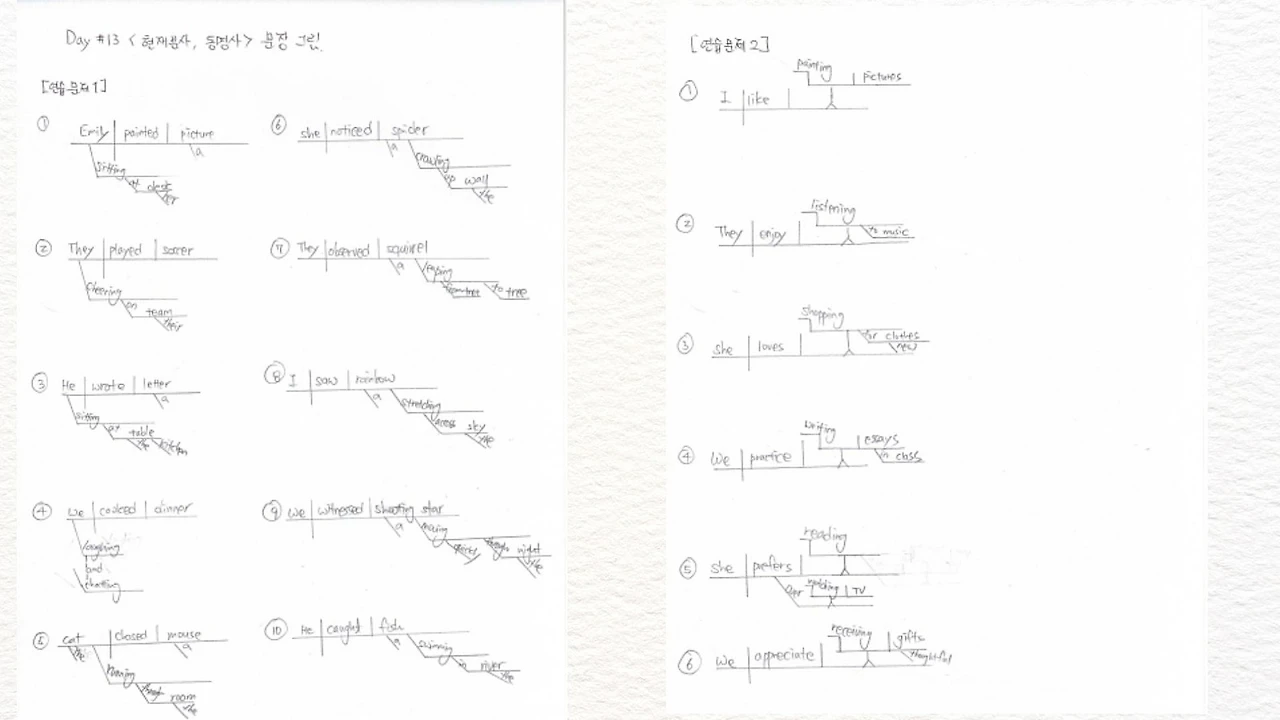 Day #13 < 현재분사, 동명사 > 문장 그림
[연습문제1]
① Emily painted picture
a
sitting
at desk
her
② They played soccer
cheering
on team
their
③ He wrote letter
a
sitting
at table
the kitchen
④ we cooked dinner
laughing
and
chatting
⑤ cat chased mouse
the a
running
through room
the
⑥ she noticed spider
a
crawling
up wall
the
⑦ They observed squirrel
a leaping
from tree to tree
⑧ I saw rainbow
a
stretching
across sky
the
⑨ we witnessed shooting star
a moving
through night
the
⑩ He caught fish
a
swimming
in river
the
[연습문제2]
① I like painting pictures
② They enjoy listening to music
③ she loves shopping for clothes
new
④ we practice writing essays
in class
⑤ she prefers reading
over watching TV
⑥ we appreciate receiving gifts
thoughtful